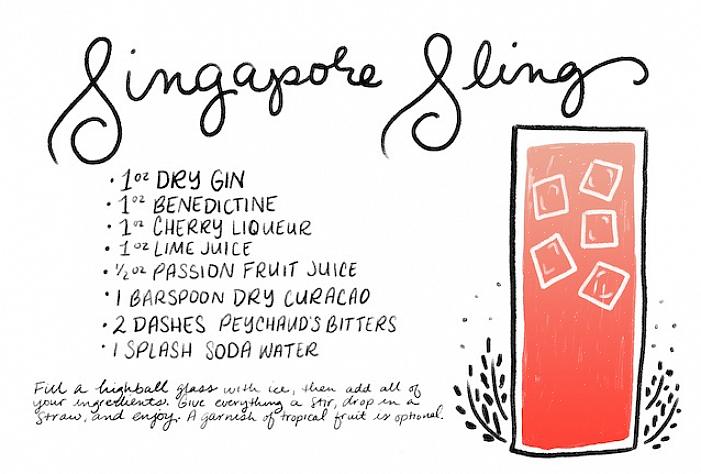 Singapore Sling
· 1oz DRY GIN
· 1oz BENEDICTINE
· 1oz CHERRY LIQUEUR
· 1oz LIME JUICE
· ½oz PASSION FRUIT JUICE
· 1 BARSPOON DRY CURACAO
· 2 DASHES PEYCHAUD'S BITTERS
· 1 SPLASH SODA WATER
Fill a highball glass with ice, then add all of
your ingredients. Give everything a stir, drop in a
straw, and enjoy. A garnish of tropical fruit is optional.